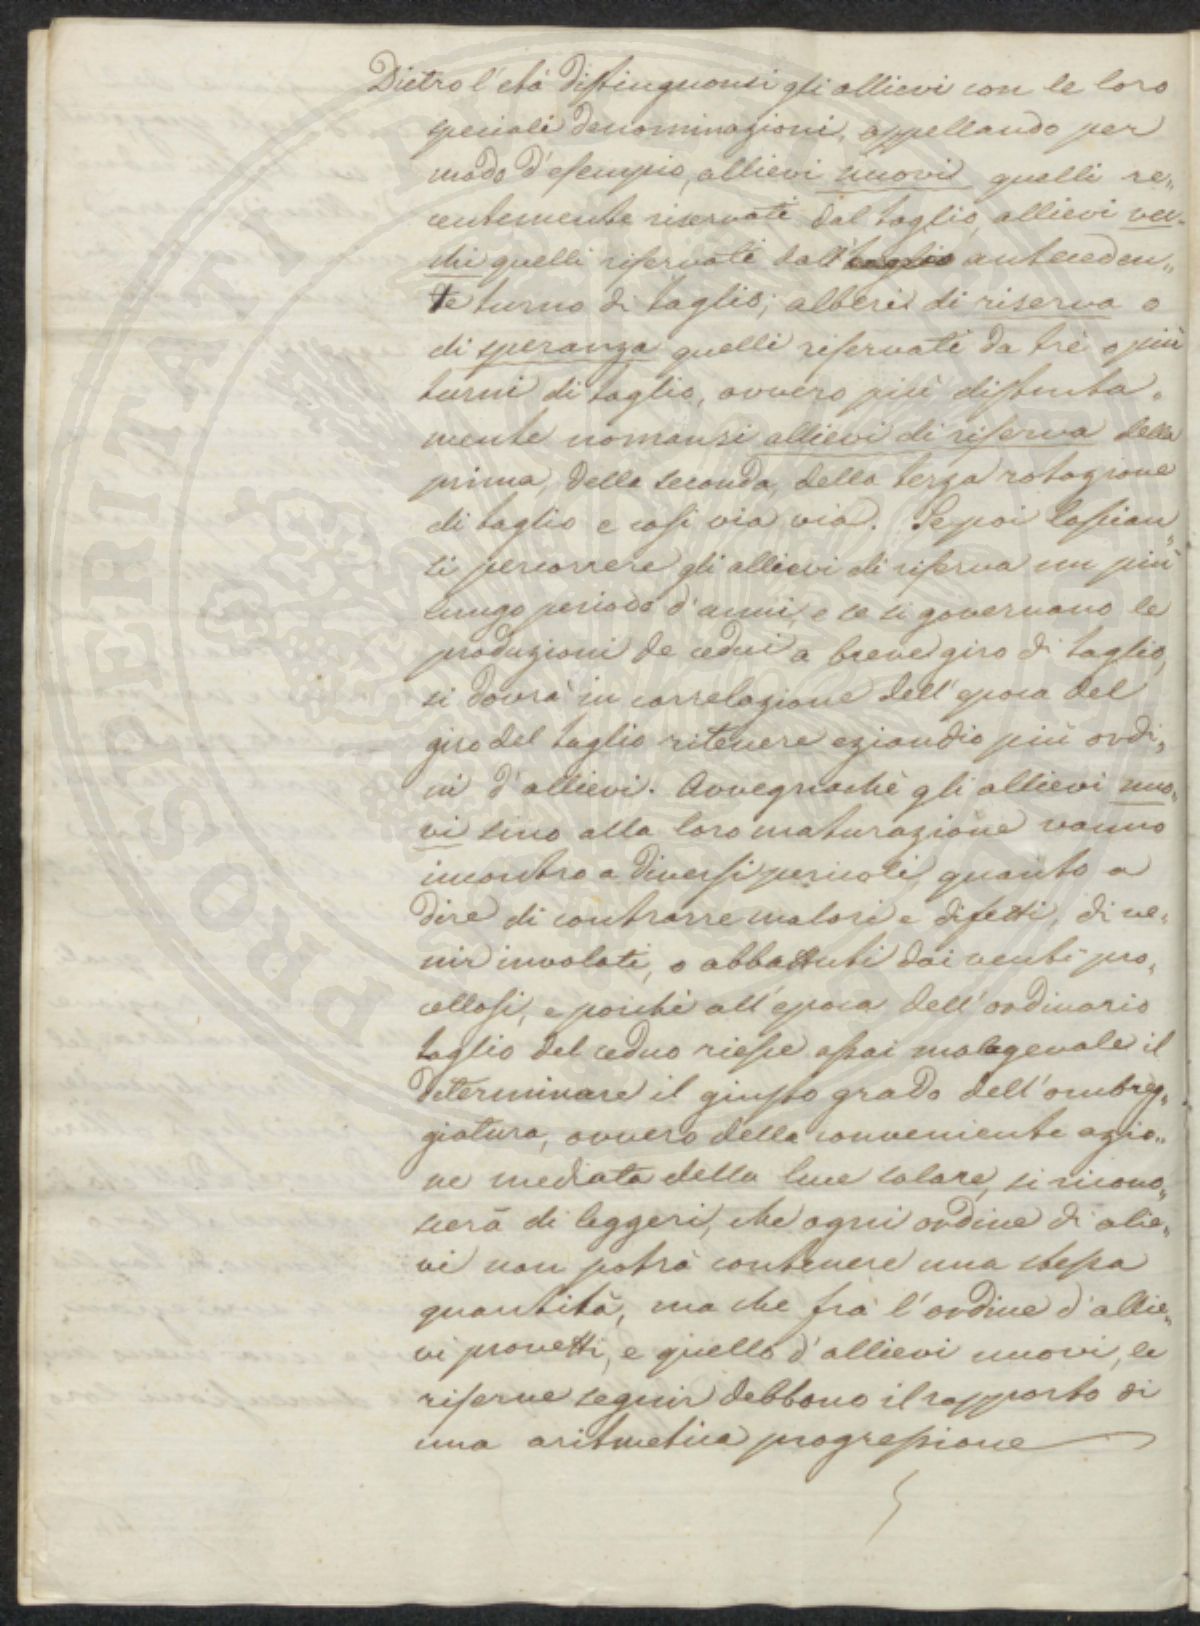 Dietro l'età distinguonsi gli allievi con le loro
speciali denominazioni, appellando per
modo d'esempio, allievi nuovi quelli re„
centemente riservati dal taglio, allievi vec„
chi quelli riservati dall' anteceden„
te turno di taglio; alberi di riserva o
di speranza quelli riservati da trè o più
turni di taglio, ovvero più distinta„
mente nomansi allievi di riserva della
prima, della seconda, della terza rotazione
di taglio e così via via. Se poi lascian„
si percorrere gli allievi di riserva un più
lungo periodo d'anni, e se si governano le
produzioni de cedui a breve giro di taglio,
si dovrà in correlazione dell'epoca del
giro del taglio ritenere eziandio più ordi„
ni d'allievi. Avvegnachè gli allievi nuo„
vi sino alla loro maturazione vanno
incontro a diversi pericoli, quanto a
dire di contrarre malori e difetti, di ve„
nir involati, o abbattuti dai venti pro„
cellosi, e poichè all'epoca dell'ordinario
taglio del ceduo riesse assai malagevole il
determinare il giusto grado dell'ombreg„
giatura, ovvero della conveniente azio„
ne mediata della luce solare, si ricono„
scerà di leggeri, che ogni ordine di alie„
vi non potrà contenere una stessa
quantità, ma che frà l'ordine d'allie„
vi provetti, e quello d'allievi nuovi, le
riserve seguir debbono il rapporto di
una aritmetica progressione
PROSPERITATI PUBLICAE